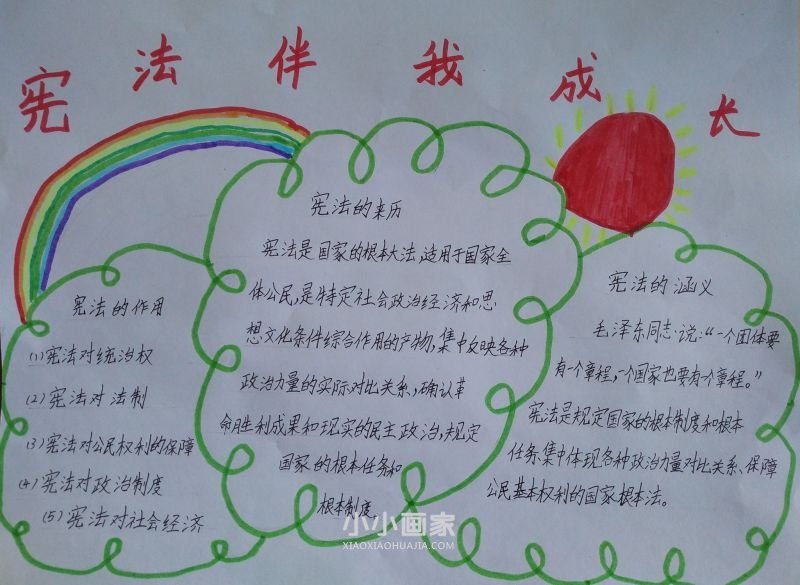 宪法伴我成长
宪法的作用
(1)宪法对统治权
(2)宪法对法制
(3)宪法对公民权利的保障
(4)宪法对政治制度
(5)宪法对社会经济
宪法的来历
宪法是国家的根本大法,适用于国家全
体公民,是特定社会政治经济和思
想文化条件综合作用的产物,集中反映各种
政治力量的实际对比关系,确认革
命胜利成果和现实的民主政治,规定
国家的根本任务和
根本制度
宪法的涵义
毛泽东同志说:“一个团体要
有一个章程,一个国家也要有个章程。”
宪法是规定国家的根本制度和根本
任务.集中体现各种政治力量对比关系、保障
公民基本权利的国家根本法。
小小画家
XIAOXIAOHUAJIA.COM